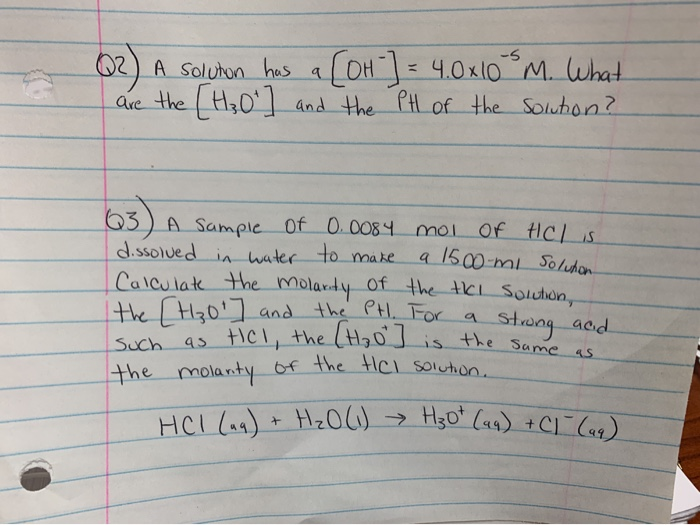 Q2) A solution has a [OH⁻] = 4.0x10⁻⁵ M. What
are the [H₃O⁺] and the PH of the solution?
Q3) A sample of 0.0084 mol of HCl is
dissolved in water to make a 1500-ml solution
Calculate the molarity of the HCl solution,
the [H₃O⁺] and the PH. For a strong acid
such as HCl, the [H₃O⁺] is the same as
the molarity of the HCl solution.
HCl (aq) + H₂O(l) → H₃O⁺ (aq) + Cl⁻ (aq)